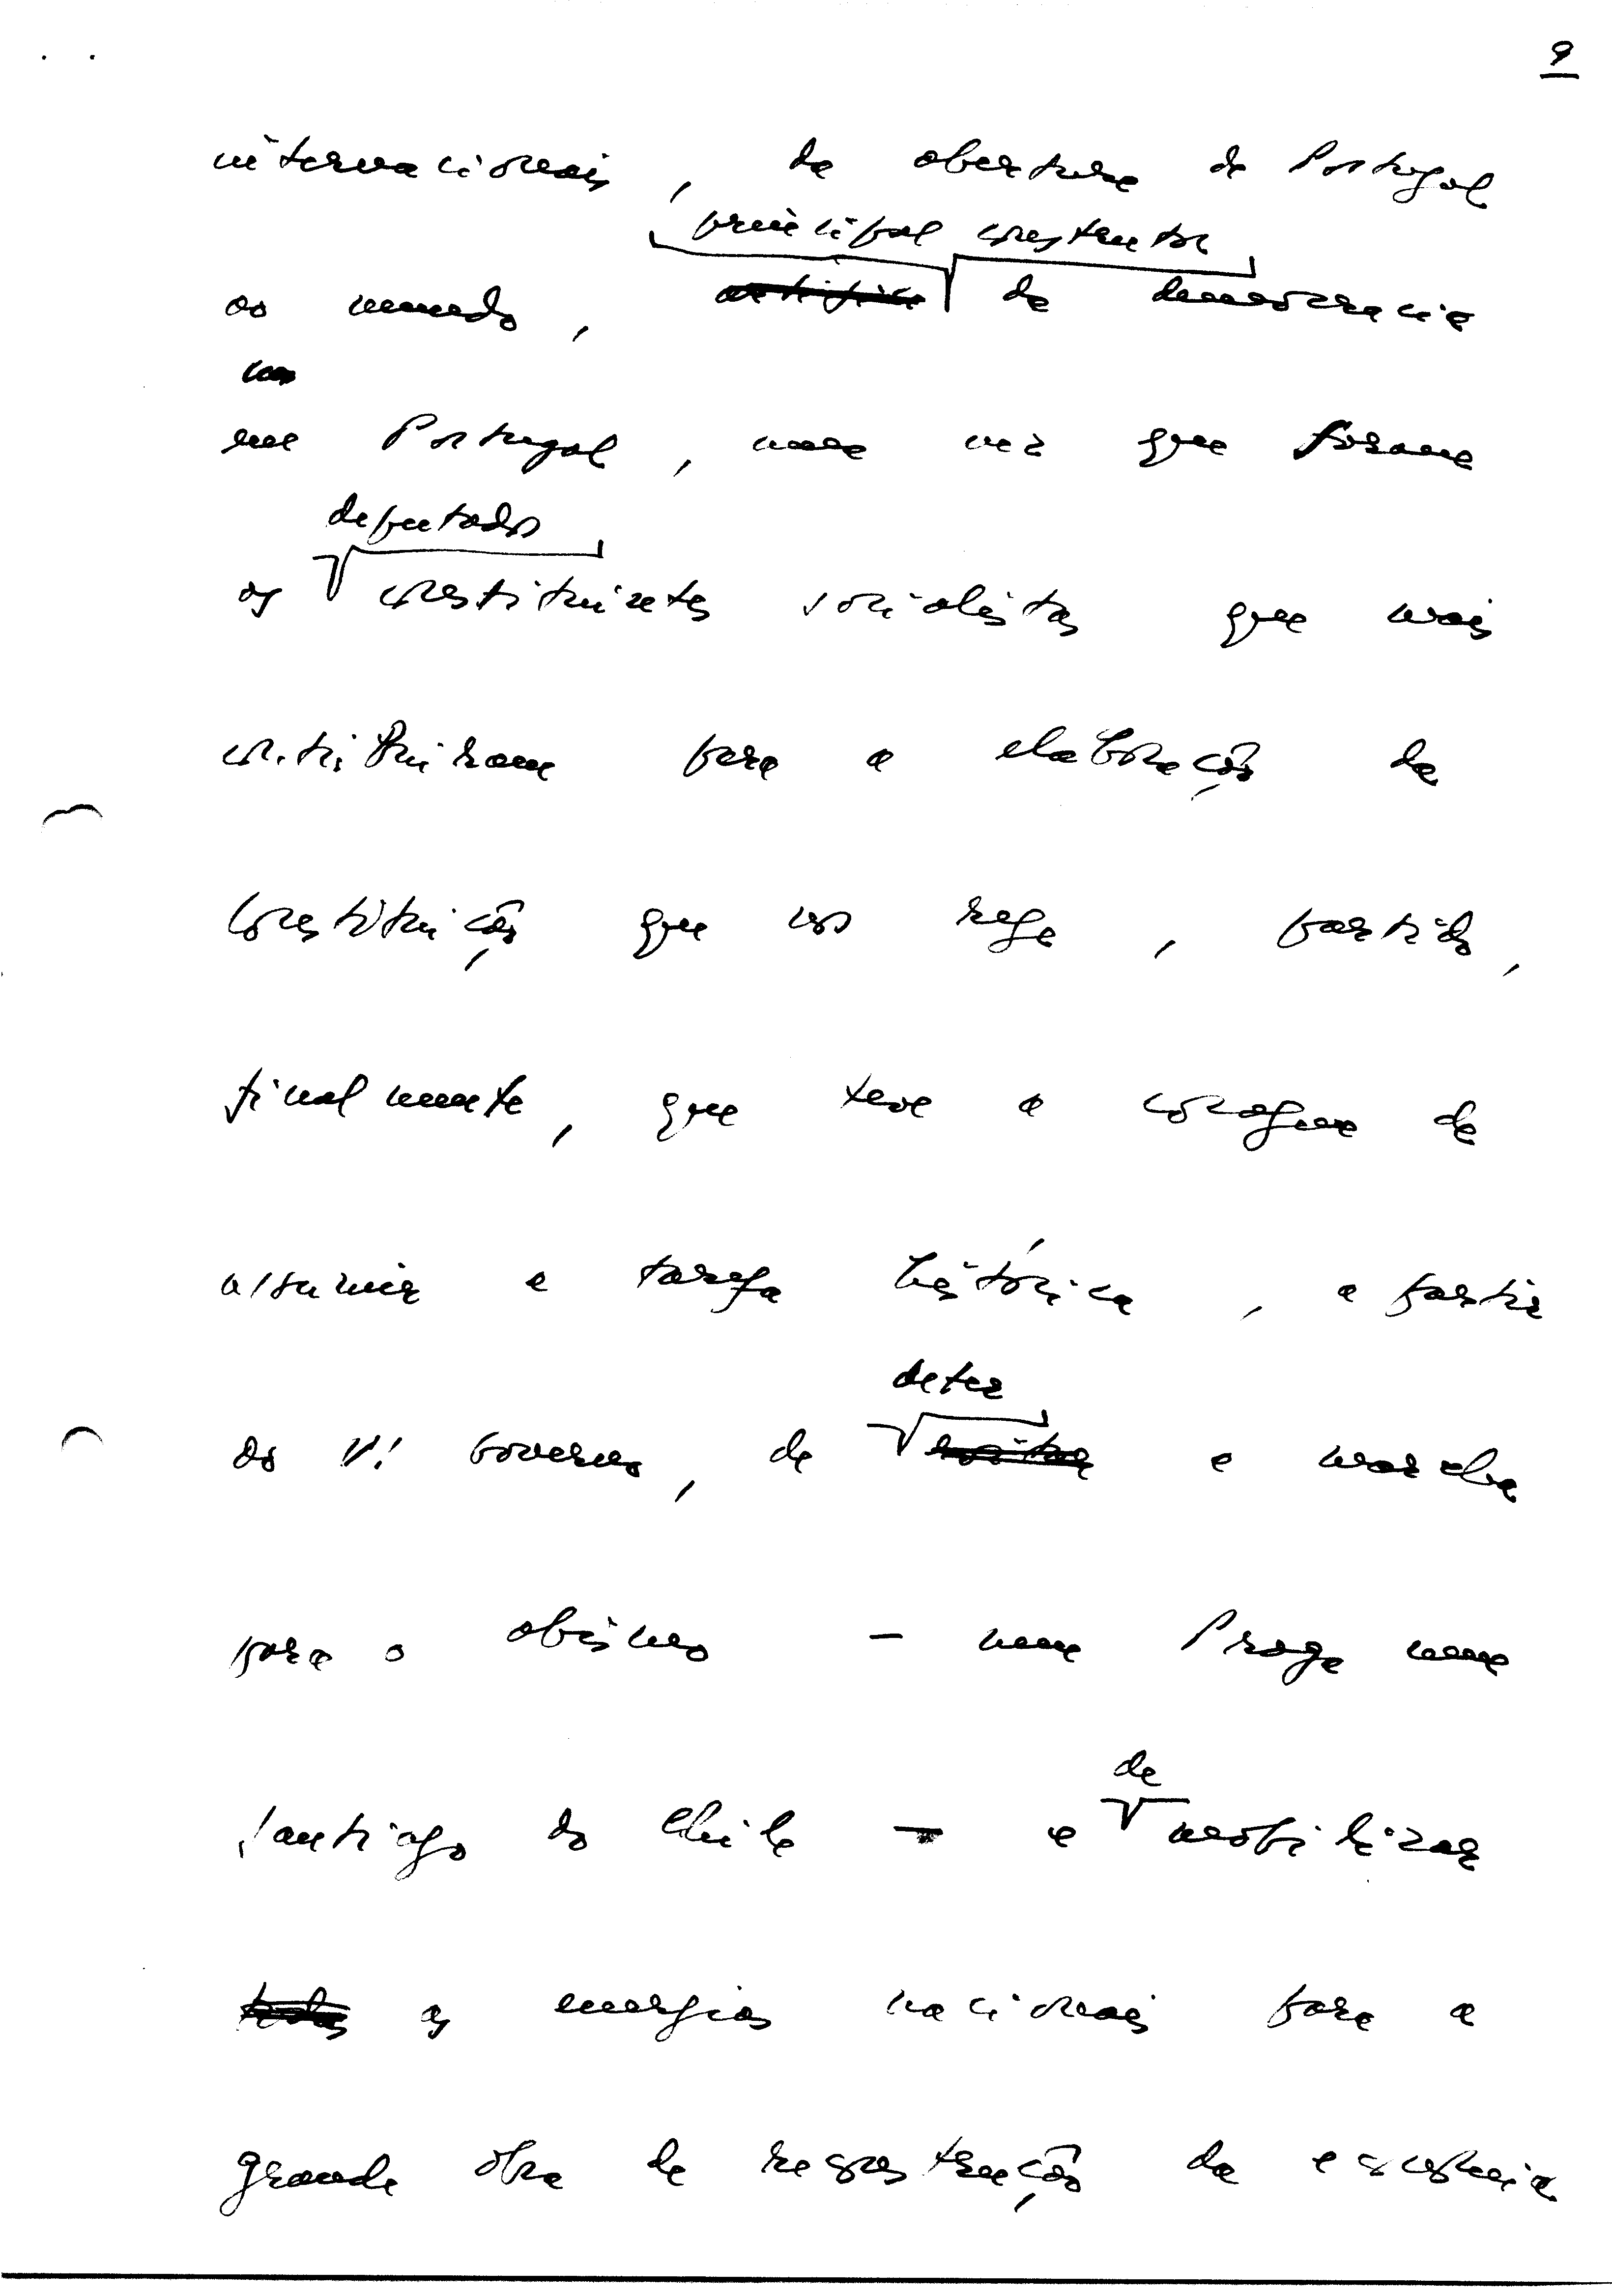 9
internacionais, da abertura de Portugal
principal construtor
ao mundo, artífice da democracia
em Portugal, uma vez que foram
deputados
os constituintes socialistas que mais
contribuíram para a elaboração da
Constituição que nos rege, partido,
finalmente, que teve a coragem de
assumir a tarefa histórica, a partir
do VI Governo, de
deter
a marcha
para o abismo - nem Praga nem
de
Santiago do Chile - e mobilizar
todas as energias nacionais para a
grande obra de reconstrução da economia